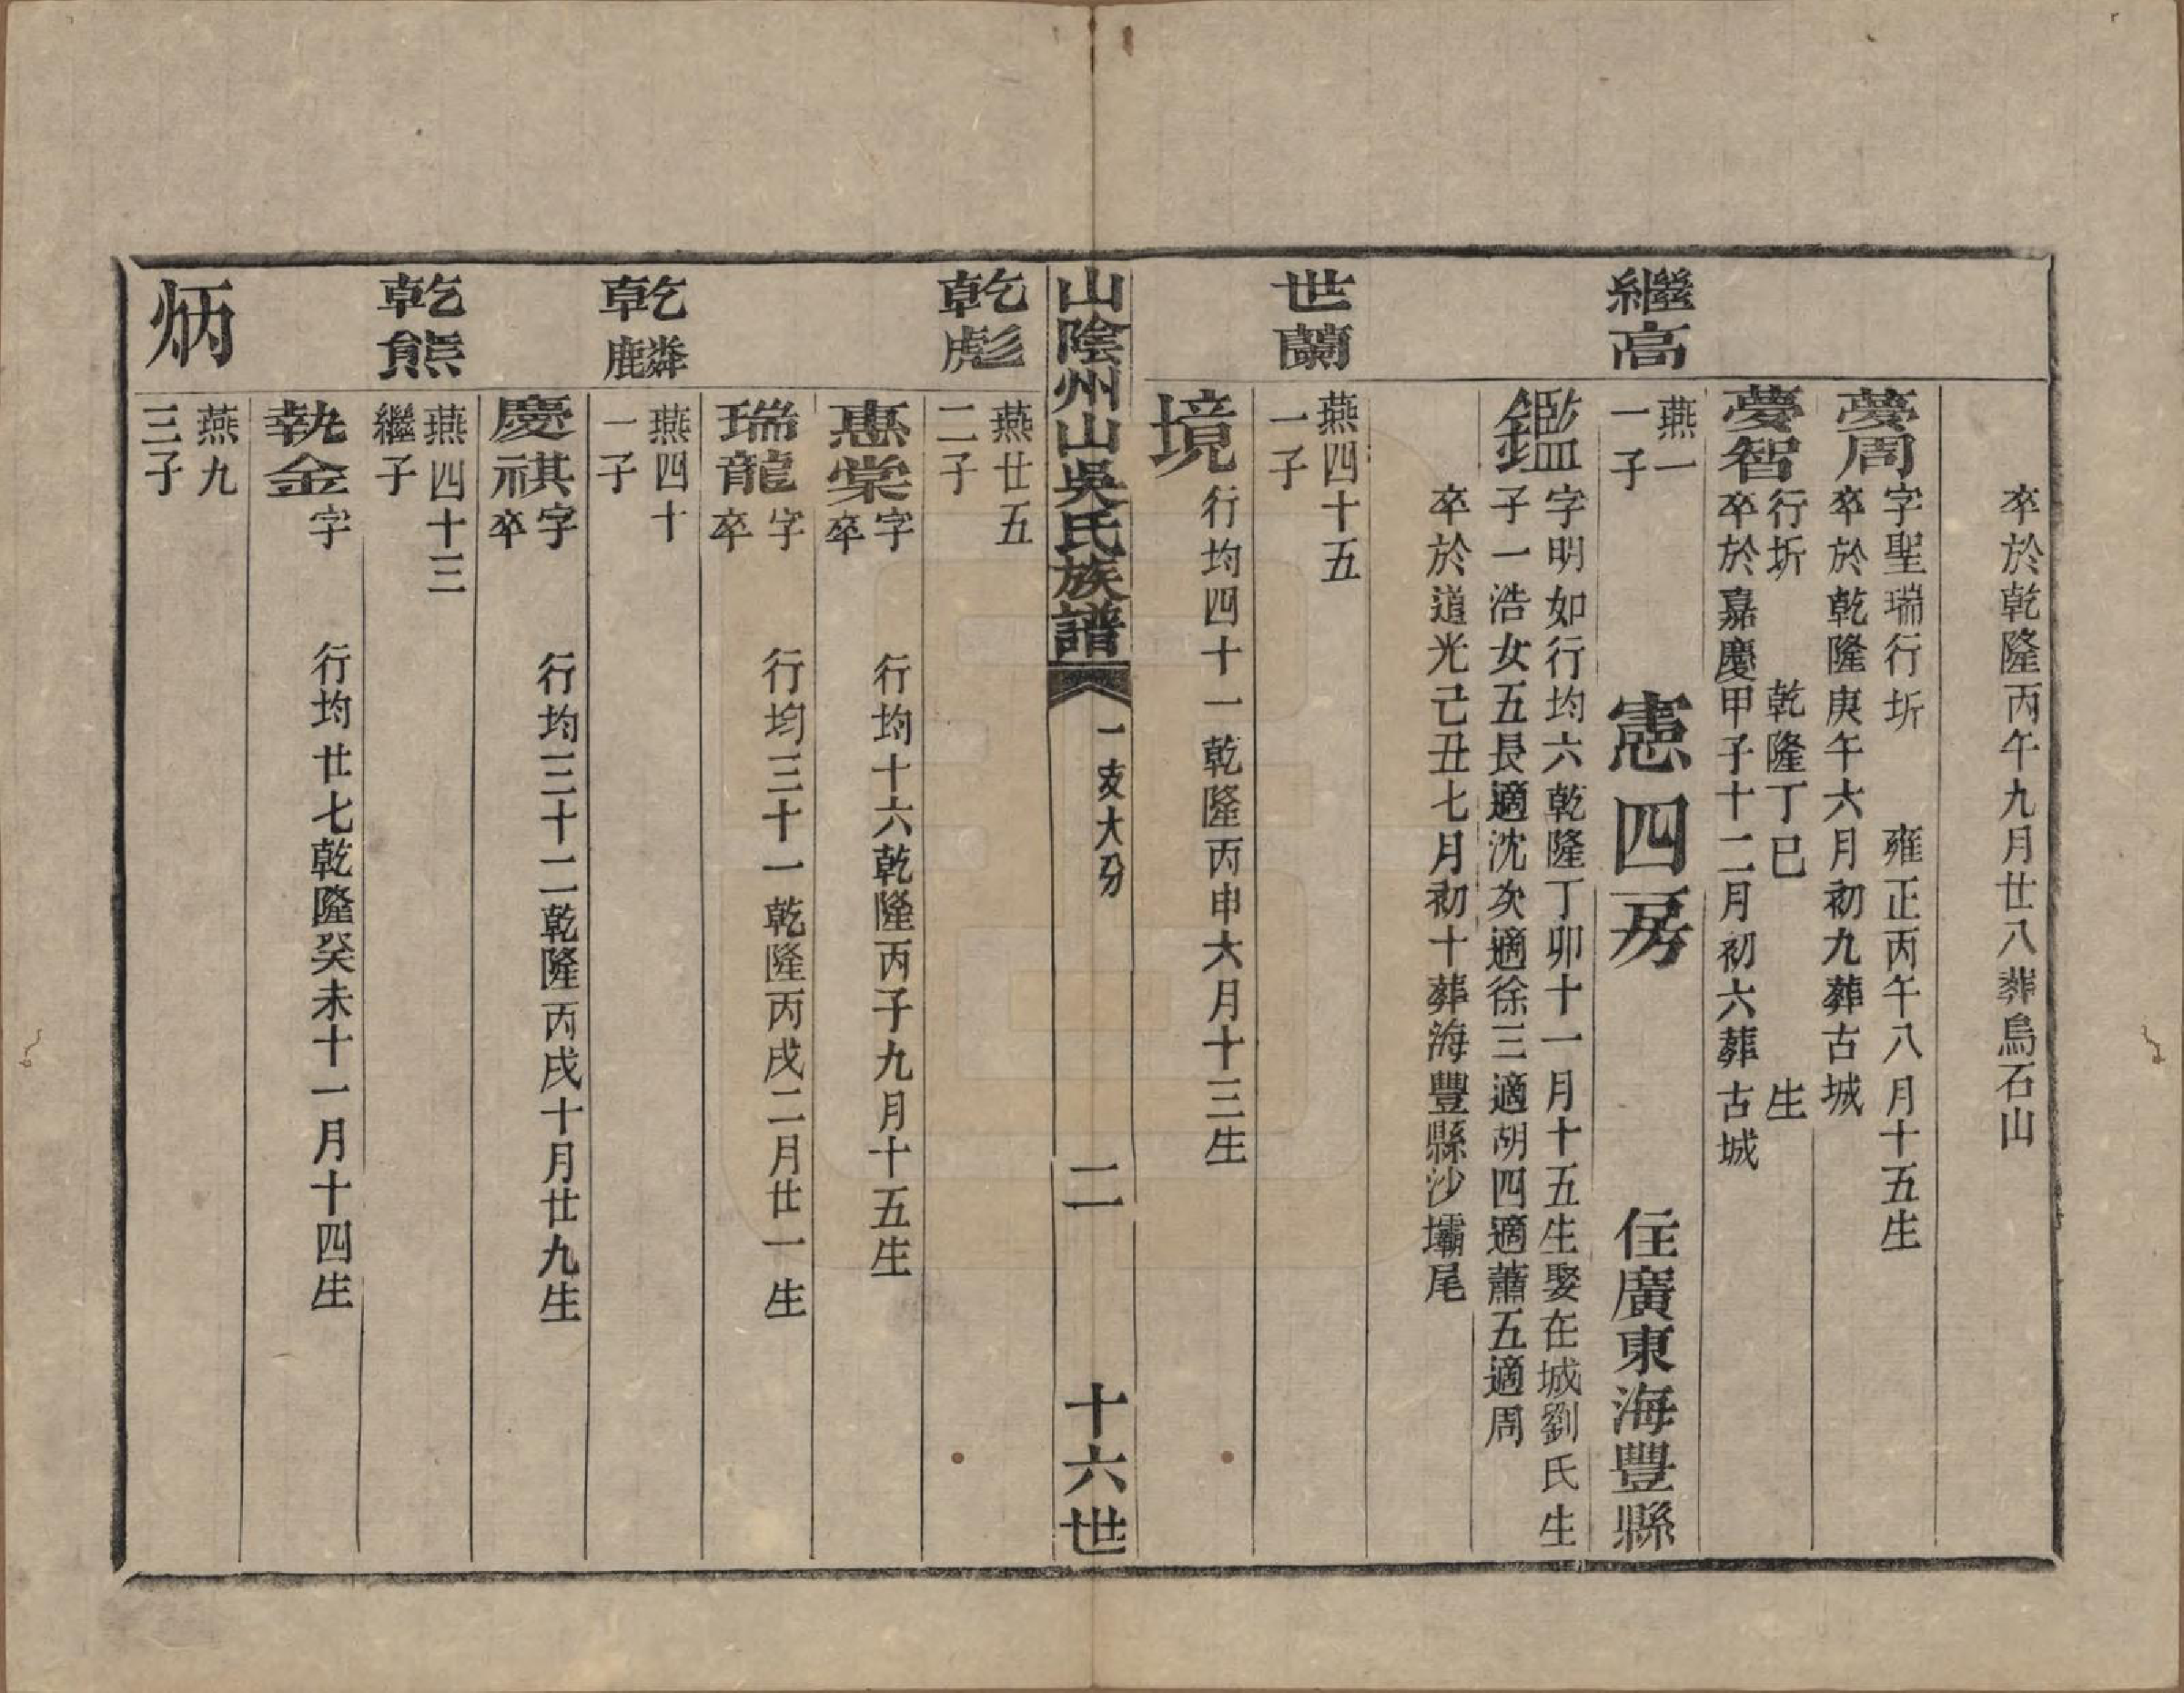 卒於乾隆丙午九月廿八葬烏石山
夢周
字聖瑞行圻　雍正丙午八月十五生
卒於乾隆庚午六月初九葬古城
夢智
行圻　乾隆丁巳　生
卒於嘉慶甲子十二月初六葬古城
繼高
燕一
一子
憲四房　住廣東海豐縣
鑑
字明如行均六乾隆丁卯十一月十五生娶在城劉氏生
子一浩女五長適沈次適徐三適胡四適蕭五適周
卒於道光己丑七月初十葬海豐縣沙壩尾
世蘭
燕四十五
一子
境
行均四十一乾隆丙申六月十三生
山陰州山吳氏族譜　一支大分　二　十六世
乾彪
燕廿五
二子
惠棠
字　行均十六乾隆丙子九月十五生
卒
瑞龍
字　行均三十一乾隆丙戌二月廿一生
卒
乾麟
燕四十
一子
慶祺
字　行均三十二乾隆丙戌十月廿九生
卒
乾熊
燕四十三
繼子
執金
字　行均廿七乾隆癸未十一月十四生
炳
燕九
三子